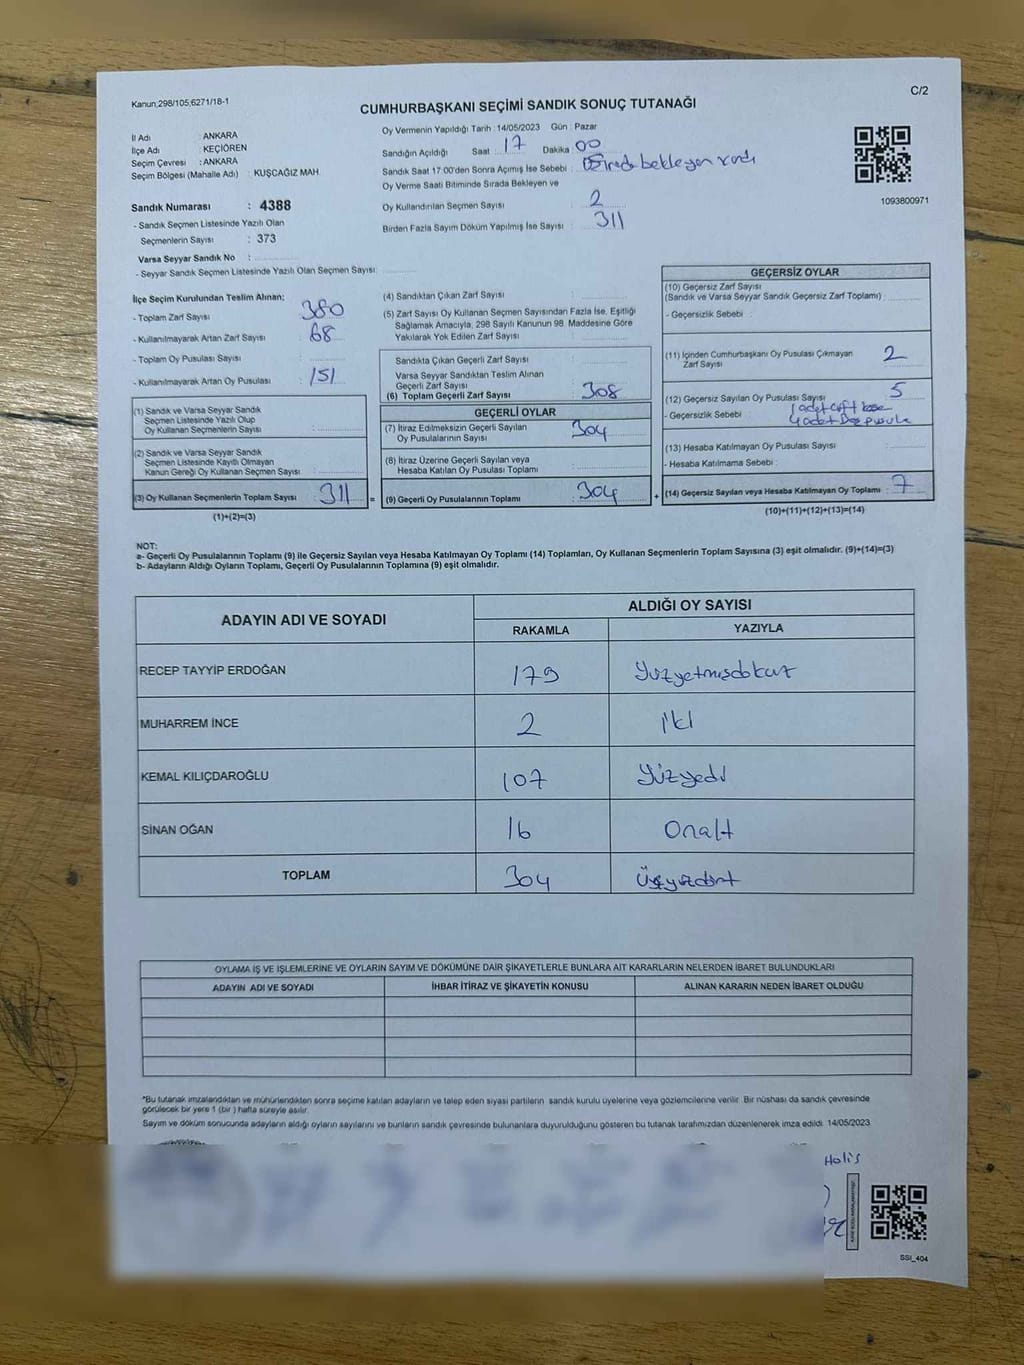 Kanun;298/105,6271/18-1
C/2
CUMHURBAŞKANI SEÇİMİ SANDIK SONUÇ TUTANAĞI
İl Adı : ANKARA
İlçe Adı : KEÇİÖREN
Seçim Çevresi : ANKARA
Seçim Bölgesi (Mahalle Adı) : KUŞCAĞIZ MAH.
Sandık Numarası : 4388
- Sandık Seçmen Listesinde Yazılı Olan
Seçmenlerin Sayısı : 373
Varsa Seyyar Sandık No :
- Seyyar Sandık Seçmen Listesinde Yazılı Olan Seçmen Sayısı:
Oy Vermenin Yapıldığı Tarih :14/05/2023 Gün : Pazar
Sandığın Açıldığı Saat : 17 Dakika : 00
Sandık Saat 17:00'den Sonra Açımış İse Sebebi : Sırada bekleyen vardı
Oy Verme Saati Bitiminde Sırada Bekleyen ve
Oy Kullandırılan Seçmen Sayısı : 2
Birden Fazla Sayım Döküm Yapılmış İse Sayısı : 311
1093800971
İlçe Seçim Kurulundan Teslim Alınan;
- Toplam Zarf Sayısı : 380
- Kullanılmayarak Artan Zarf Sayısı : 68
- Toplam Oy Pusulası Sayısı :
- Kullanılmayarak Artan Oy Pusulası : 151
(1) Sandık ve Varsa Seyyar Sandık
Seçmen Listesinde Yazılı Olup
Oy Kullanan Seçmenlerin Sayısı :
(2) Sandık ve Varsa Seyyar Sandık
Seçmen Listesinde Kayıtlı Olmayan
Kanun Gereği Oy Kullanan Seçmen Sayısı :
(3) Oy Kullanan Seçmenlerin Toplam Sayısı : 311 =
(1)+(2)=(3)
(4) Sandıktan Çıkan Zarf Sayısı :
(5) Zarf Sayısı Oy Kullanan Seçmen Sayısından Fazla İse, Eşitliği
Sağlamak Amacıyla, 298 Sayılı Kanunun 98. Maddesine Göre
Yakılarak Yok Edilen Zarf Sayısı :
Sandıkta Çıkan Geçerli Zarf Sayısı :
Varsa Seyyar Sandıktan Teslim Alınan
Geçerli Zarf Sayısı :
(6) Toplam Geçerli Zarf Sayısı : 308
GEÇERLİ OYLAR
(7) İtiraz Edilmeksizin Geçerli Sayılan
Oy Pusulalarının Sayısı : 304
(8) İtiraz Üzerine Geçerli Sayılan veya
Hesaba Katılan Oy Pusulası Toplamı :
(9) Geçerli Oy Pusulalarının Toplamı : 304 +
GEÇERSİZ OYLAR
(10) Geçersiz Zarf Sayısı
(Sandık ve Varsa Seyyar Sandık Geçersiz Zarf Toplamı) :
- Geçersizlik Sebebi :
(11) İçinden Cumhurbaşkanı Oy Pusulası Çıkmayan
Zarf Sayısı : 2
(12) Geçersiz Sayılan Oy Pusulası Sayısı : 5
- Geçersizlik Sebebi : 1 adet çift
4 adet Boş pusula
(13) Hesaba Katılmayan Oy Pusulası Sayısı :
- Hesaba Katılmama Sebebi :
(14) Geçersiz Sayılan veya Hesaba Katılmayan Oy Toplamı : 7
(10)+(11)+(12)+(13)=(14)
NOT:
a- Geçerli Oy Pusulalarının Toplamı (9) ile Geçersiz Sayılan veya Hesaba Katılmayan Oy Toplamı (14) Toplamları, Oy Kullanan Seçmenlerin Toplam Sayısına (3) eşit olmalıdır. (9)+(14)=(3)
b- Adayların Aldığı Oyların Toplamı, Geçerli Oy Pusulalarının Toplamına (9) eşit olmalıdır.
ADAYIN ADI VE SOYADI ALDIĞI OY SAYISI
RAKAMLA YAZIYLA
RECEP TAYYİP ERDOĞAN 179 Yüzyetmişdokuz
MUHARREM İNCE 2 iki
KEMAL KILIÇDAROĞLU 107 Yüzyedi
SİNAN OĞAN 16 Onaltı
TOPLAM 304 Üçyüzdört
OYLAMA İŞ VE İŞLEMLERİNE VE OYLARIN SAYIM VE DÖKÜMÜNE DAİR ŞİKAYETLERLE BUNLARA AİT KARARLARIN NELERDEN İBARET BULUNDUKLARI
ADAYIN ADI VE SOYADI İHBAR İTİRAZ VE ŞİKAYETİN KONUSU ALINAN KARARIN NEDEN İBARET OLDUĞU
*Bu tutanak imzalandıktan ve mühürlendikten sonra seçime katılan adayların ve talep eden siyasi partilerin sandık kurulu üyelerine veya gözlemcilerine verilir. Bir nüshası da sandık çevresinde
görülecek bir yere 1 (bir ) hafta süreyle asılır.
Sayım ve döküm sonucunda adayların aldığı oyların sayılarını ve bunların sandık çevresinde bulunanlara duyurulduğunu gösteren bu tutanak tarafımızdan düzenlenerek imza edildi. 14/05/2023
SSI_404